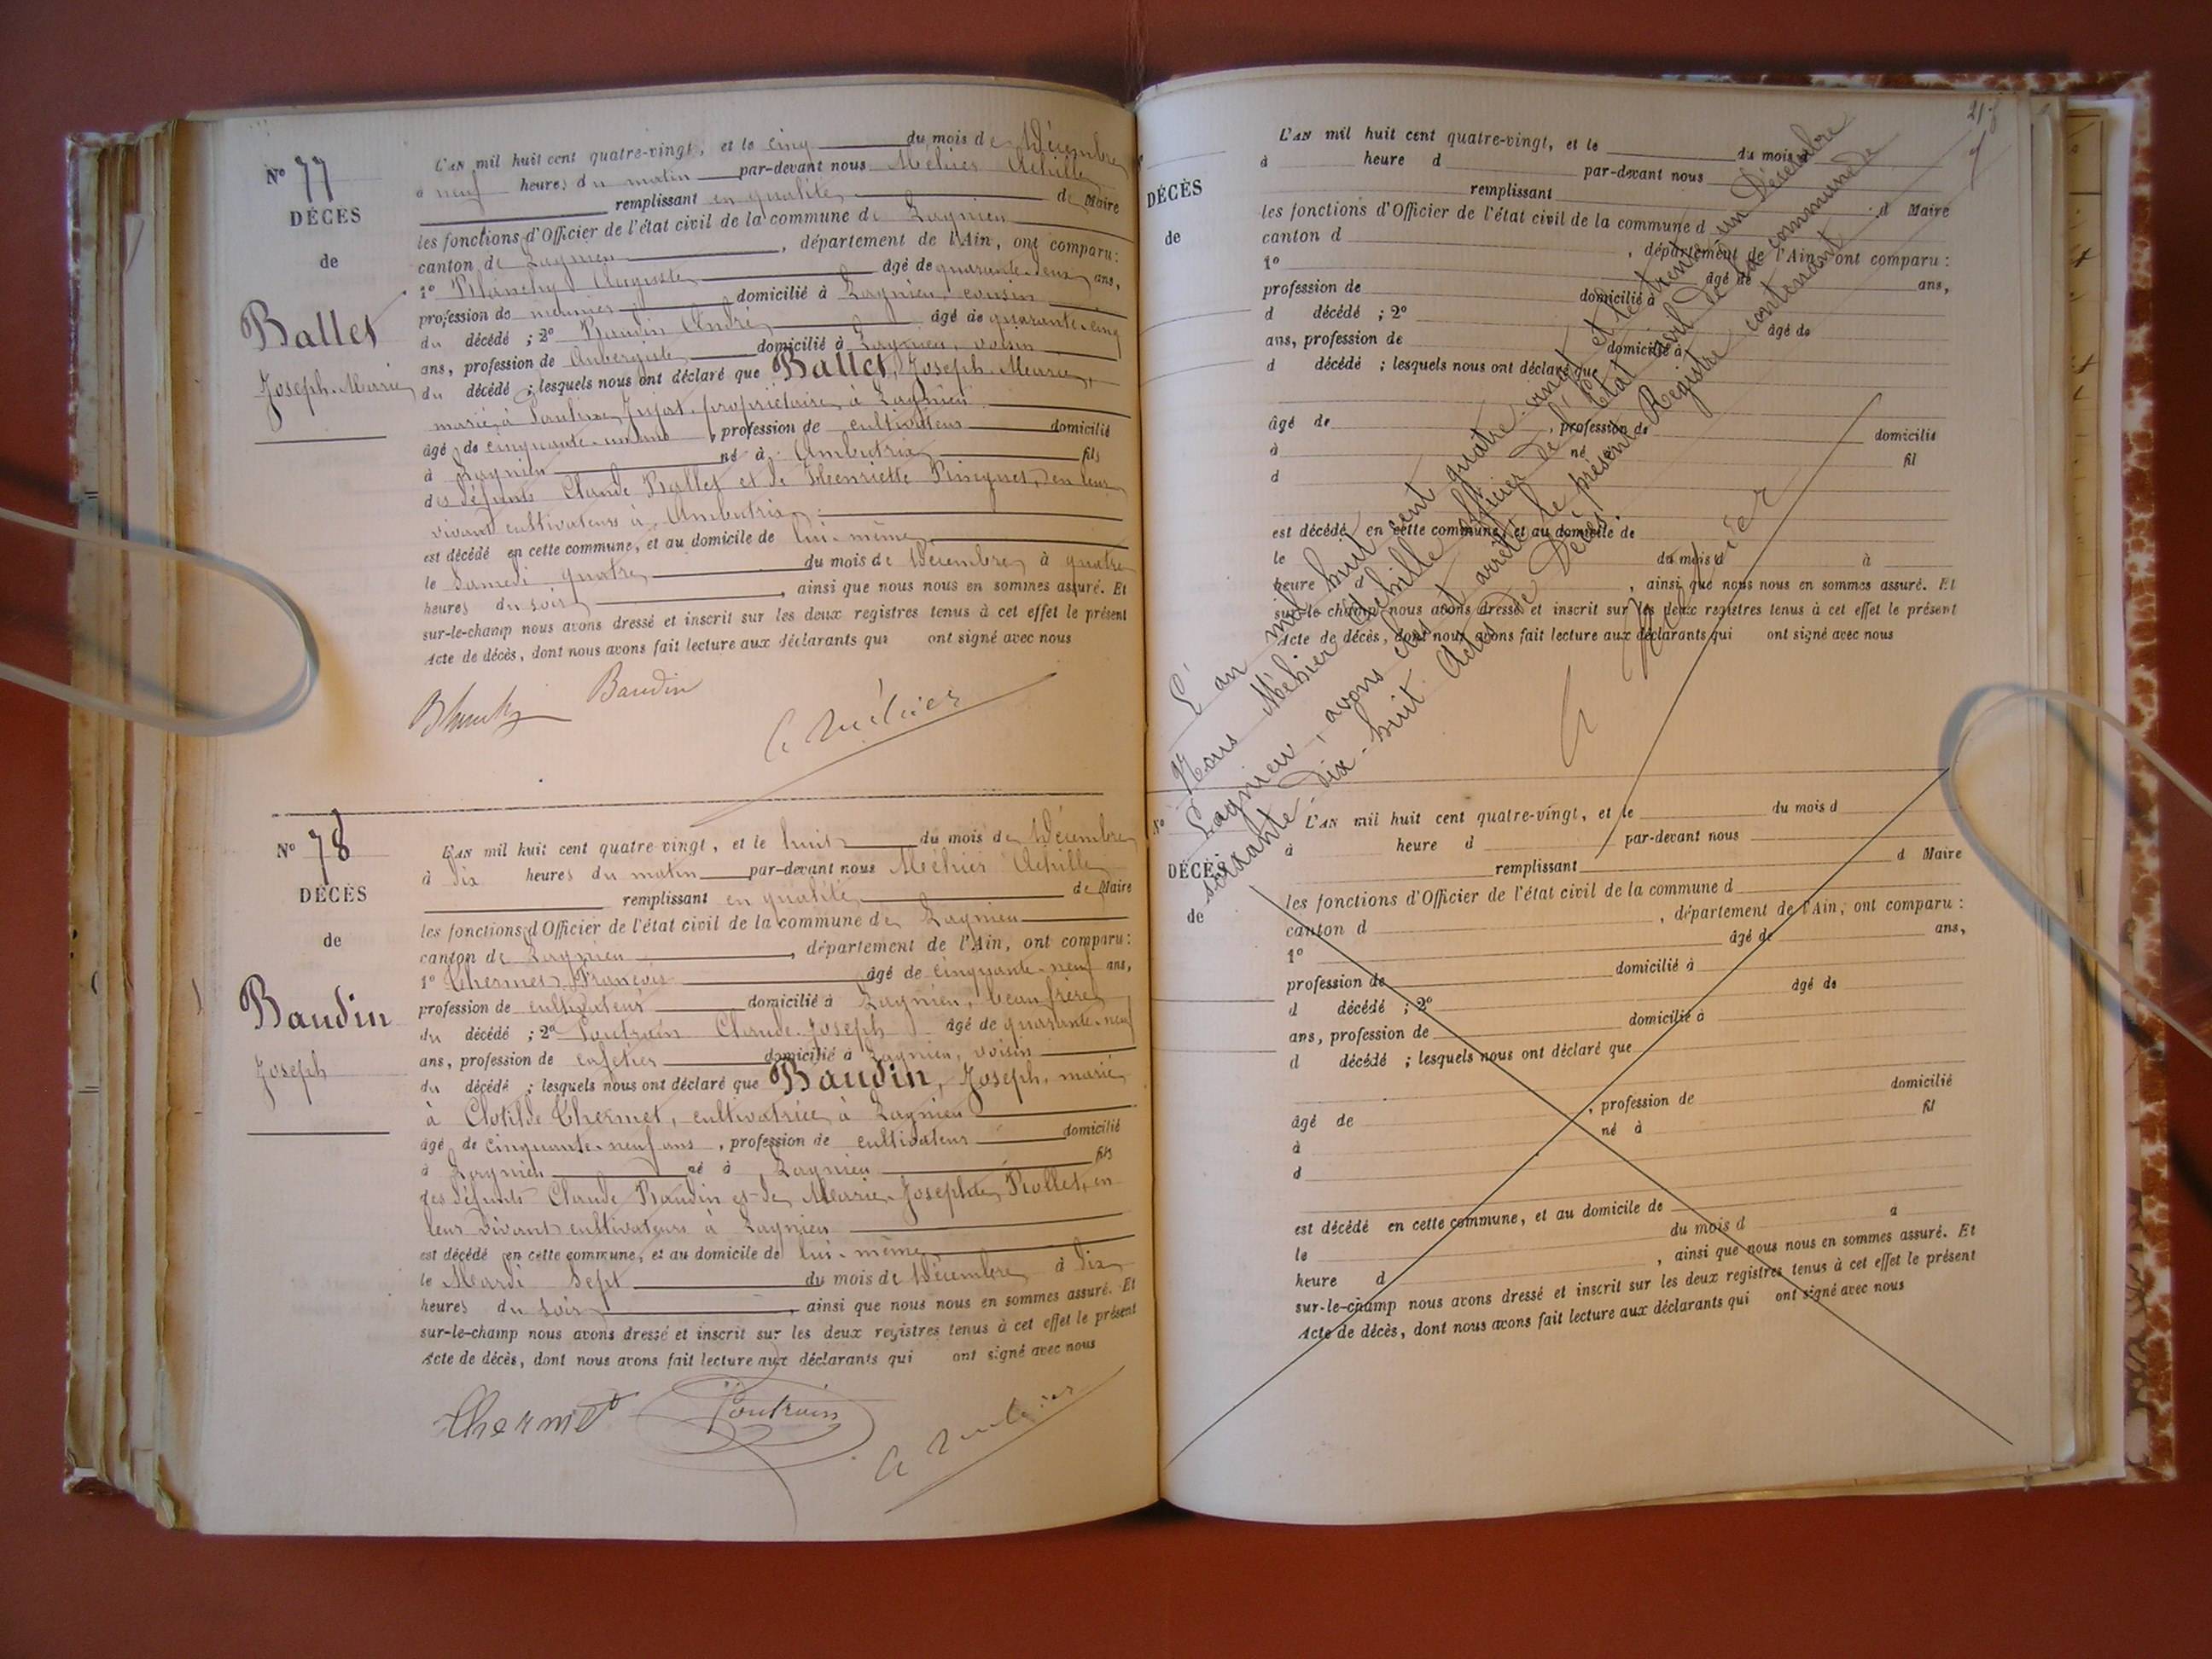 N° 77
DÉCÈS
de
Ballet
Joseph-Marie
L'AN mil huit cent quatre-vingt, et le cinq du mois de Décembre
à neuf heures du matin par-devant nous Méhier Achille
remplissant en qualité de Maire
les fonctions d'Officier de l'état civil de la commune de Lagnieu
canton de Lagnieu, département de l'Ain, ont comparu:
1° Planchy Auguste âgé de quarante-deux ans,
profession de meunier domicilié à Lagnieu, cousin
du décédé ; 2° Baudin André âgé de quarante-cinq
ans, profession de Aubergiste domicilié à Lagnieu, voisin
du décédé ; lesquels nous ont déclaré que Ballet, Joseph-Marie,
marié à Pauline propriétaire à Lagnieu
âgé de cinquante-un ans, profession de cultivateur domicilié
à Lagnieu né à Ambutrix fils
des défunts Claude Ballet et de Henriette en leur
vivant cultivateurs à Ambutrix
est décédé en cette commune, et au domicile de lui-même
le Samedi quatre du mois de Décembre à quatre
heures du soir, ainsi que nous nous en sommes assuré. Et
sur-le-champ nous avons dressé et inscrit sur les deux registres tenus à cet effet le présent
Acte de décès, dont nous avons fait lecture aux déclarants qui ont signé avec nous
Baudin
A Méhier
N° 78
DÉCÈS
de
Baudin
Joseph
L'AN mil huit cent quatre-vingt, et le huit du mois de Décembre
à dix heures du matin par-devant nous Méhier Achille
remplissant en qualité de Maire
les fonctions d'Officier de l'état civil de la commune de Lagnieu
canton de Lagnieu, département de l'Ain, ont comparu:
1° Thermet François âgé de cinquante-neuf ans,
profession de cultivateur domicilié à Lagnieu, beau frère
du décédé ; 2° Poutrain Claude-Joseph âgé de quarante-neuf
ans, profession de cafetier domicilié à Lagnieu, voisin
du décédé ; lesquels nous ont déclaré que Baudin, Joseph, marié
à Clotilde Thermet, cultivatrice à Lagnieu
âgé de cinquante-neuf ans, profession de cultivateur domicilié
à Lagnieu né à Lagnieu fils
des défunts Claude Baudin et de Marie-Josephte Rollet, en
leur vivant cultivateurs à Lagnieu
est décédé en cette commune, et au domicile de lui-même
le Mardi Sept du mois de Décembre à dix
heures du soir, ainsi que nous nous en sommes assuré. Et
sur-le-champ nous avons dressé et inscrit sur les deux registres tenus à cet effet le présent
Acte de décès, dont nous avons fait lecture aux déclarants qui ont signé avec nous
Thermet
Poutrain
A Méhier
DÉCÈS
de
L'AN mil huit cent quatre-vingt, et le du mois d
à heure d par-devant nous
remplissant d Maire
les fonctions d'Officier de l'état civil de la commune d
canton d , département de l'Ain, ont comparu :
1° âgé de ans,
profession de domicilié à
d décédé ; 2° âgé de
ans, profession de domicilié à
d décédé ; lesquels nous ont déclaré que
âgé de , profession de domicilié
à né à fil
d
est décédé en cette commune, et au domicile de
le du mois d à
heure d , ainsi que nous nous en sommes assuré. Et
sur-le-champ nous avons dressé et inscrit sur les deux registres tenus à cet effet le présent
Acte de décès, dont nous avons fait lecture aux déclarants qui ont signé avec nous
L'an mil huit cent quatre-vingt et le trente-un Décembre
Nous Méhier Achille Officier de l'État civil de la commune de
Lagnieu, avons clos et arrêté le présent Registre contenant
soixante dix-huit Actes de Décès.
A Méhier
N°
DÉCÈS
de
L'AN mil huit cent quatre-vingt, et le du mois d
à heure d par-devant nous
remplissant d Maire
les fonctions d'Officier de l'état civil de la commune d
canton d , département de l'Ain, ont comparu :
1° âgé de ans,
profession de domicilié à
d décédé ; 2° âgé de
ans, profession de domicilié à
d décédé ; lesquels nous ont déclaré que
âgé de , profession de domicilié
à né à fil
d
est décédé en cette commune, et au domicile de
le du mois d à
heure d , ainsi que nous nous en sommes assuré. Et
sur-le-champ nous avons dressé et inscrit sur les deux registres tenus à cet effet le présent
Acte de décès, dont nous avons fait lecture aux déclarants qui ont signé avec nous